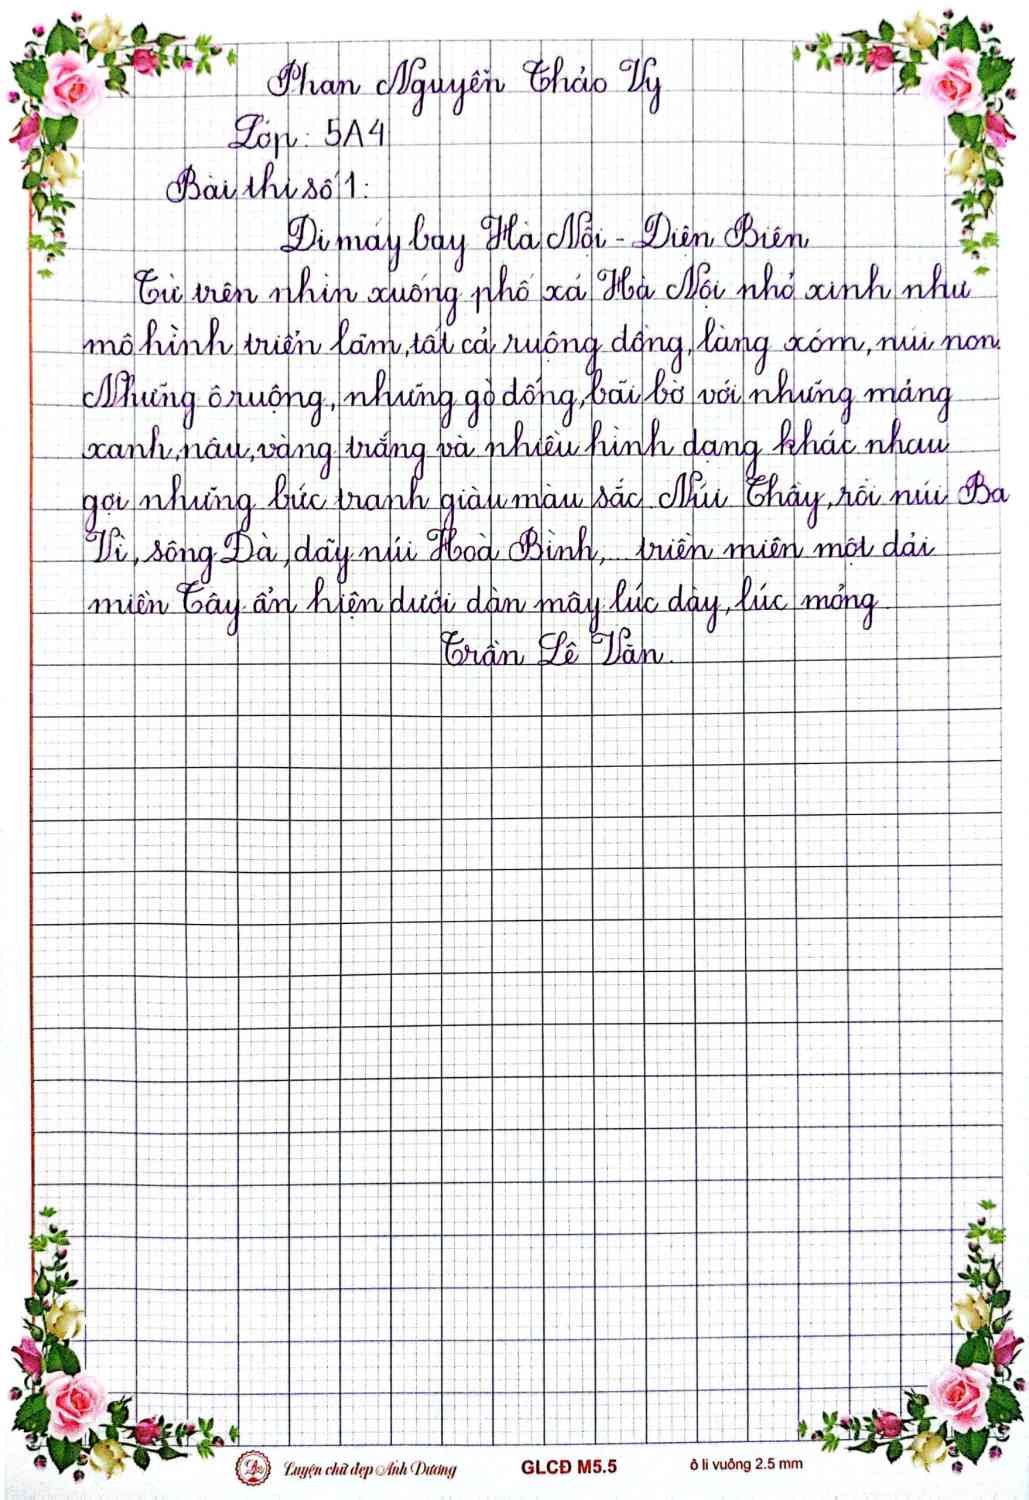 Phan Nguyễn Thảo Vy
Lớp: 5A4
Bài thi số 1:
Đi máy bay Hà Nội - Điện Biên
Từ trên nhìn xuống phố xá Hà Nội nhỏ xinh như
mô hình triển lãm, tất cả ruộng đồng, làng xóm, núi non.
Những ô ruộng, những gò đống, bãi bờ với những mảng
xanh, nâu, vàng trắng và nhiều hình dạng khác nhau
gợi những bức tranh giàu màu sắc. Núi Thầy, rồi núi Ba
Vì, sông Đà, dãy núi Hoà Bình,... triền miên một dải
miền Tây ẩn hiện dưới dàn mây lúc dày, lúc mỏng.
Trần Lê Văn.
Luyện chữ đẹp Ánh Dương
GLCĐ M5.5
ô li vuông 2.5 mm